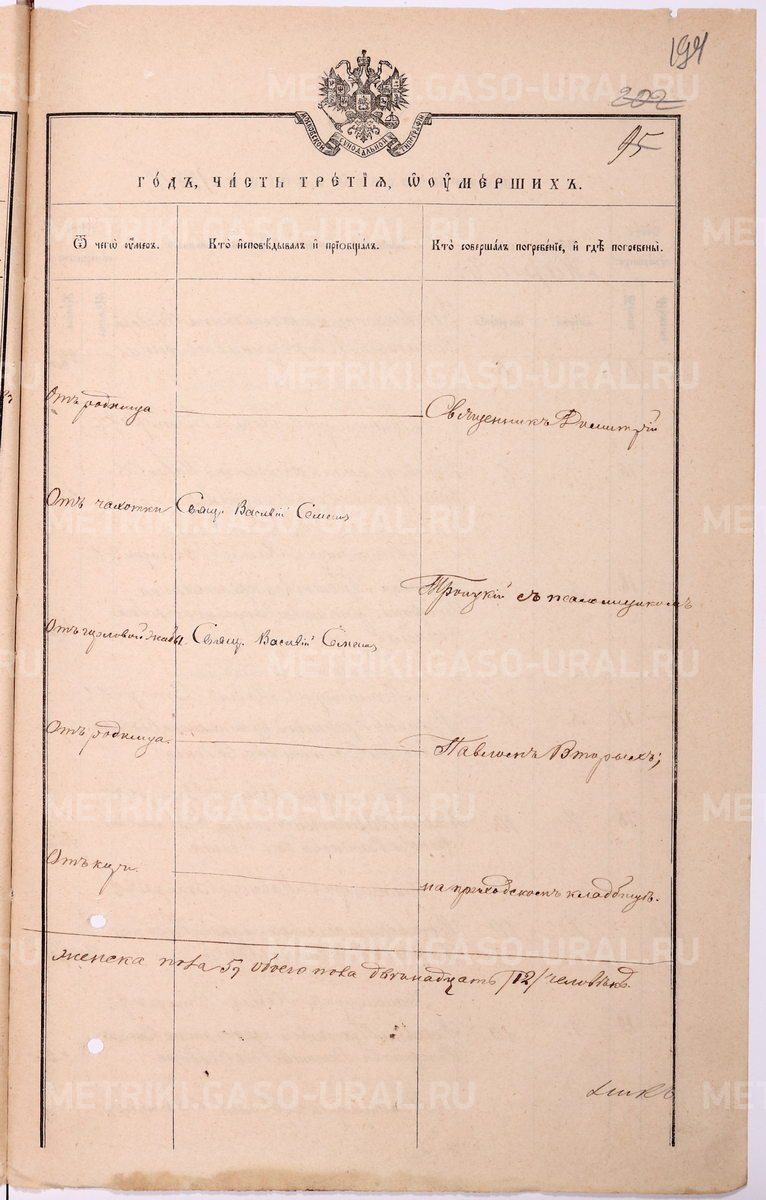 194
202
95
МОСКОВСКОЙ СѴНОДАЛЬНОЙ ТИПОГРАФІИ
ГО́ДЪ, ЧА́СТЬ ТРЕ́ТІЯ, Ѡ ОУМЕ́РШИХЪ.
Ѿ чегѡ оу́меръ.
Кто̀ и҆сповѣ́дывалъ и҆ прїѡбща́лъ.
Кто̀ соверша́лъ погребе́нїе, и҆ гдѣ̀ погребены̀.
Отъ родимца
Священникъ Димитрій
Отъ чахотки
Свящ. Василій
Троицкій съ псаломщикомъ
Отъ горловой жабы
Свящ. Василій
Отъ родимца.
Павломъ Вторыхъ;
Отъ
на приходскомъ кладбищѣ.
женска пола 5, обоего пола двѣнадцать /12/ человѣкъ.
METRIKI.GASO-URAL.RU